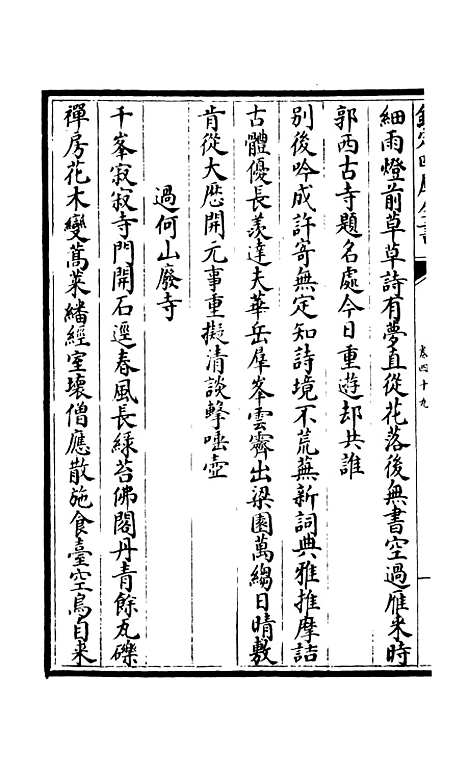 欽定四庫全書
卷四十九
細雨燈前草草詩有夢直從花落後無書空過雁來時
郭西古寺題名處今日重遊却共誰
別後吟成許寄無定知詩境不荒蕪新詞典雅推摩詰
古體優長羨達夫華岳羣峯雲霽出梁園萬縐日晴敷
肯從大厯開元事重擬清談擊唾壺
過何山廢寺
千峯寂寂寺門開石逕春風長綠苔佛閣丹青餘瓦礫
禪房花木變蒿萊繙經室壞僧應散施食臺空鳥自来